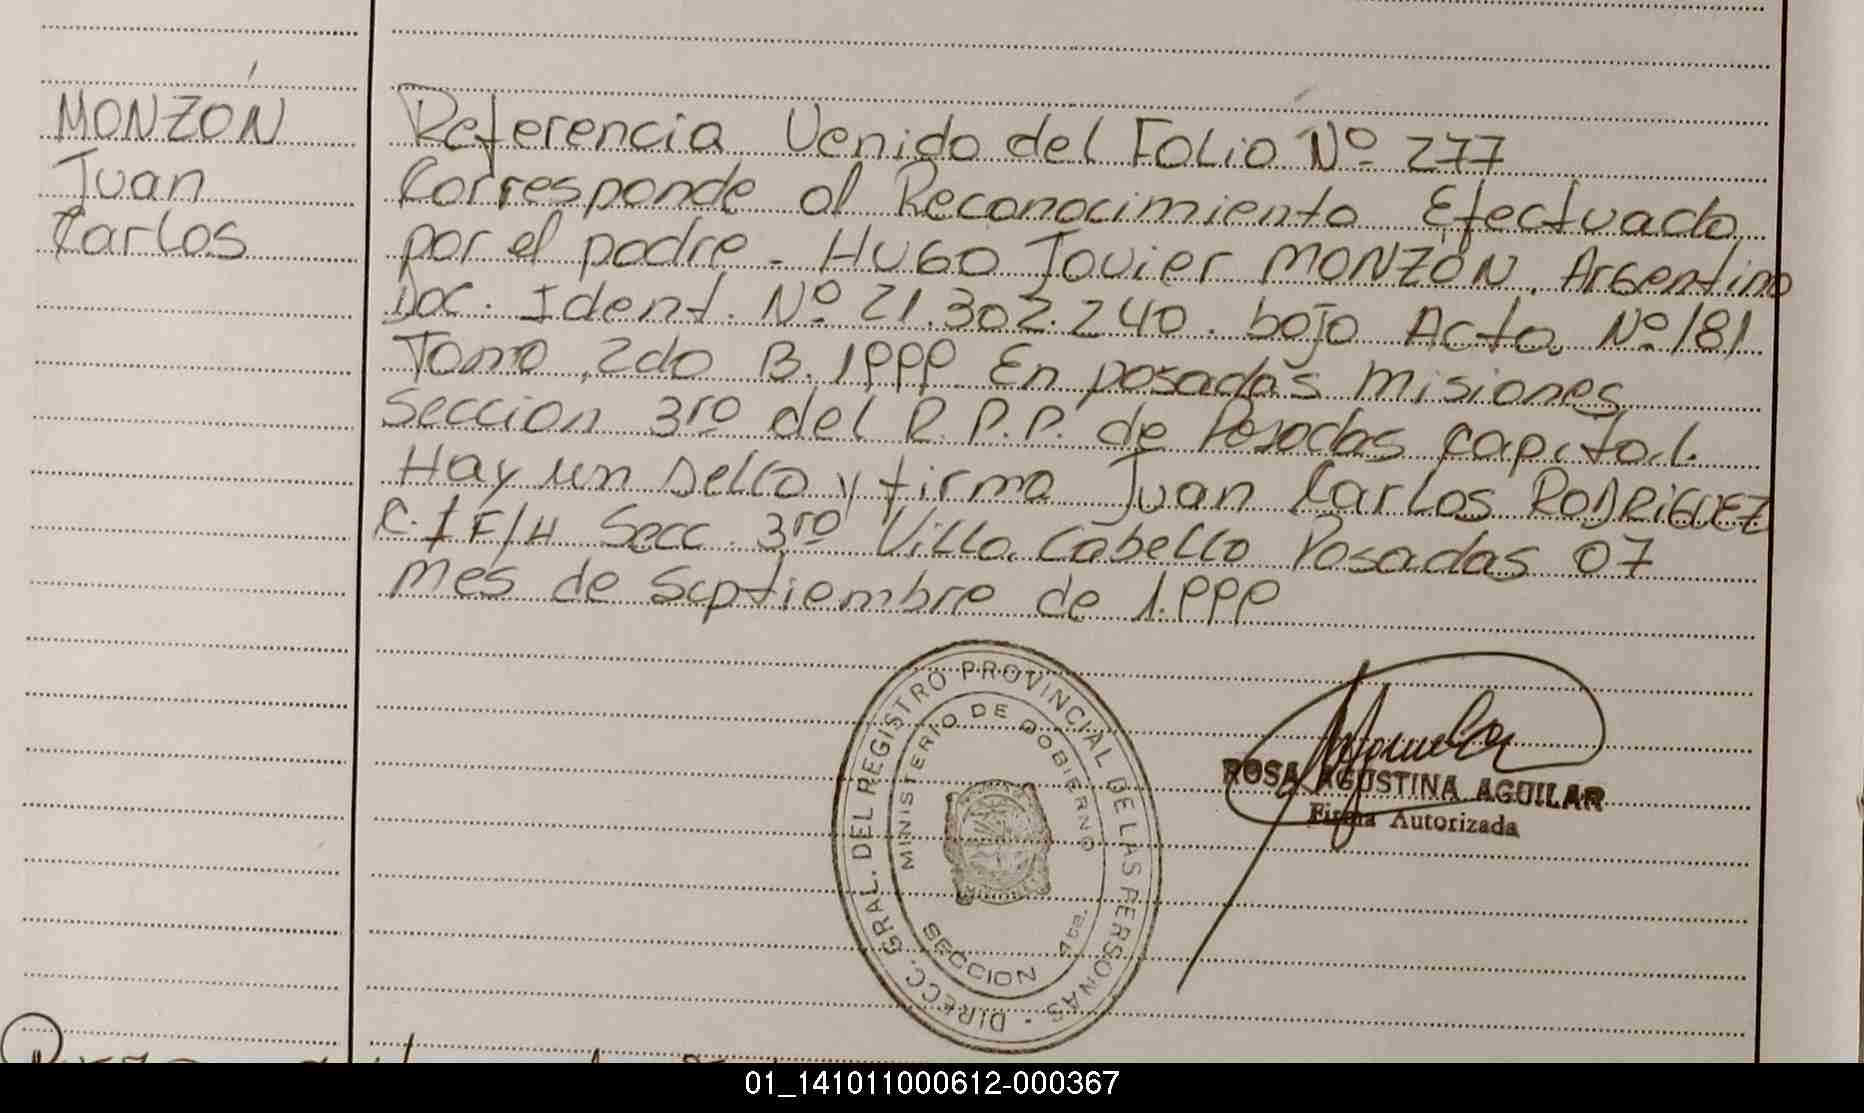 MONZÓN
Juan
Carlos
Referencia Venido del Folio Nº 277
Corresponde al Reconocimiento Efectuado
por el padre - HUGO Javier MONZÓN. Argentino
Doc. Ident. Nº 21.302.240. bajo Acta Nº 181
Tomo 2do B. 1999 En posadas misiones
Seccion 3ro del R.P.P. de Posadas capital.
Hay un Sello y firma Juan Carlos RODRIGUEZ
R. F/H Secc. 3ro Villa Cabello Posadas 07
mes de Septiembre de 1.999
DIRECC. GRAL. DEL REGISTRO PROVINCIAL DE LAS PERSONAS
MINISTERIO DE GOBIERNO
SECCION 4ta.
ROSA AGUSTINA AGUILAR
Firma Autorizada
01_141011000612-000367